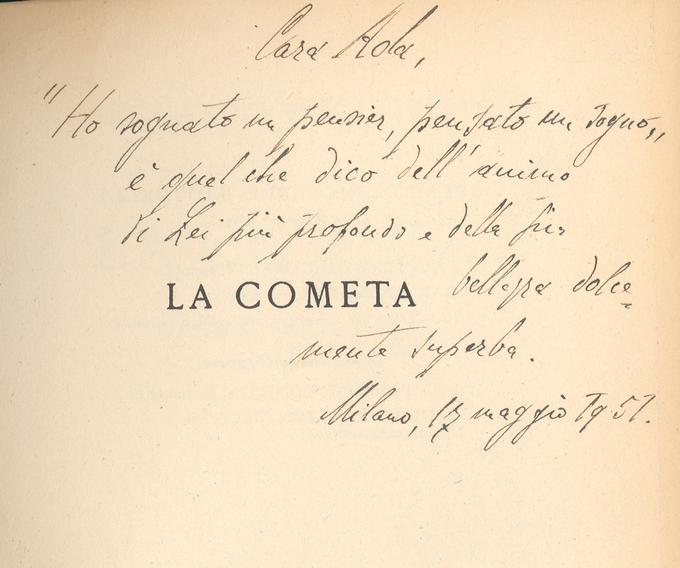 Cara Ada,
"Ho sognato un pensier, pensato un sogno,,
è quel che dico dell'animo
di Lei più profondo e della sua
LA COMETA bellezza dolce=
mente superba.
Milano, 17 maggio 1951.